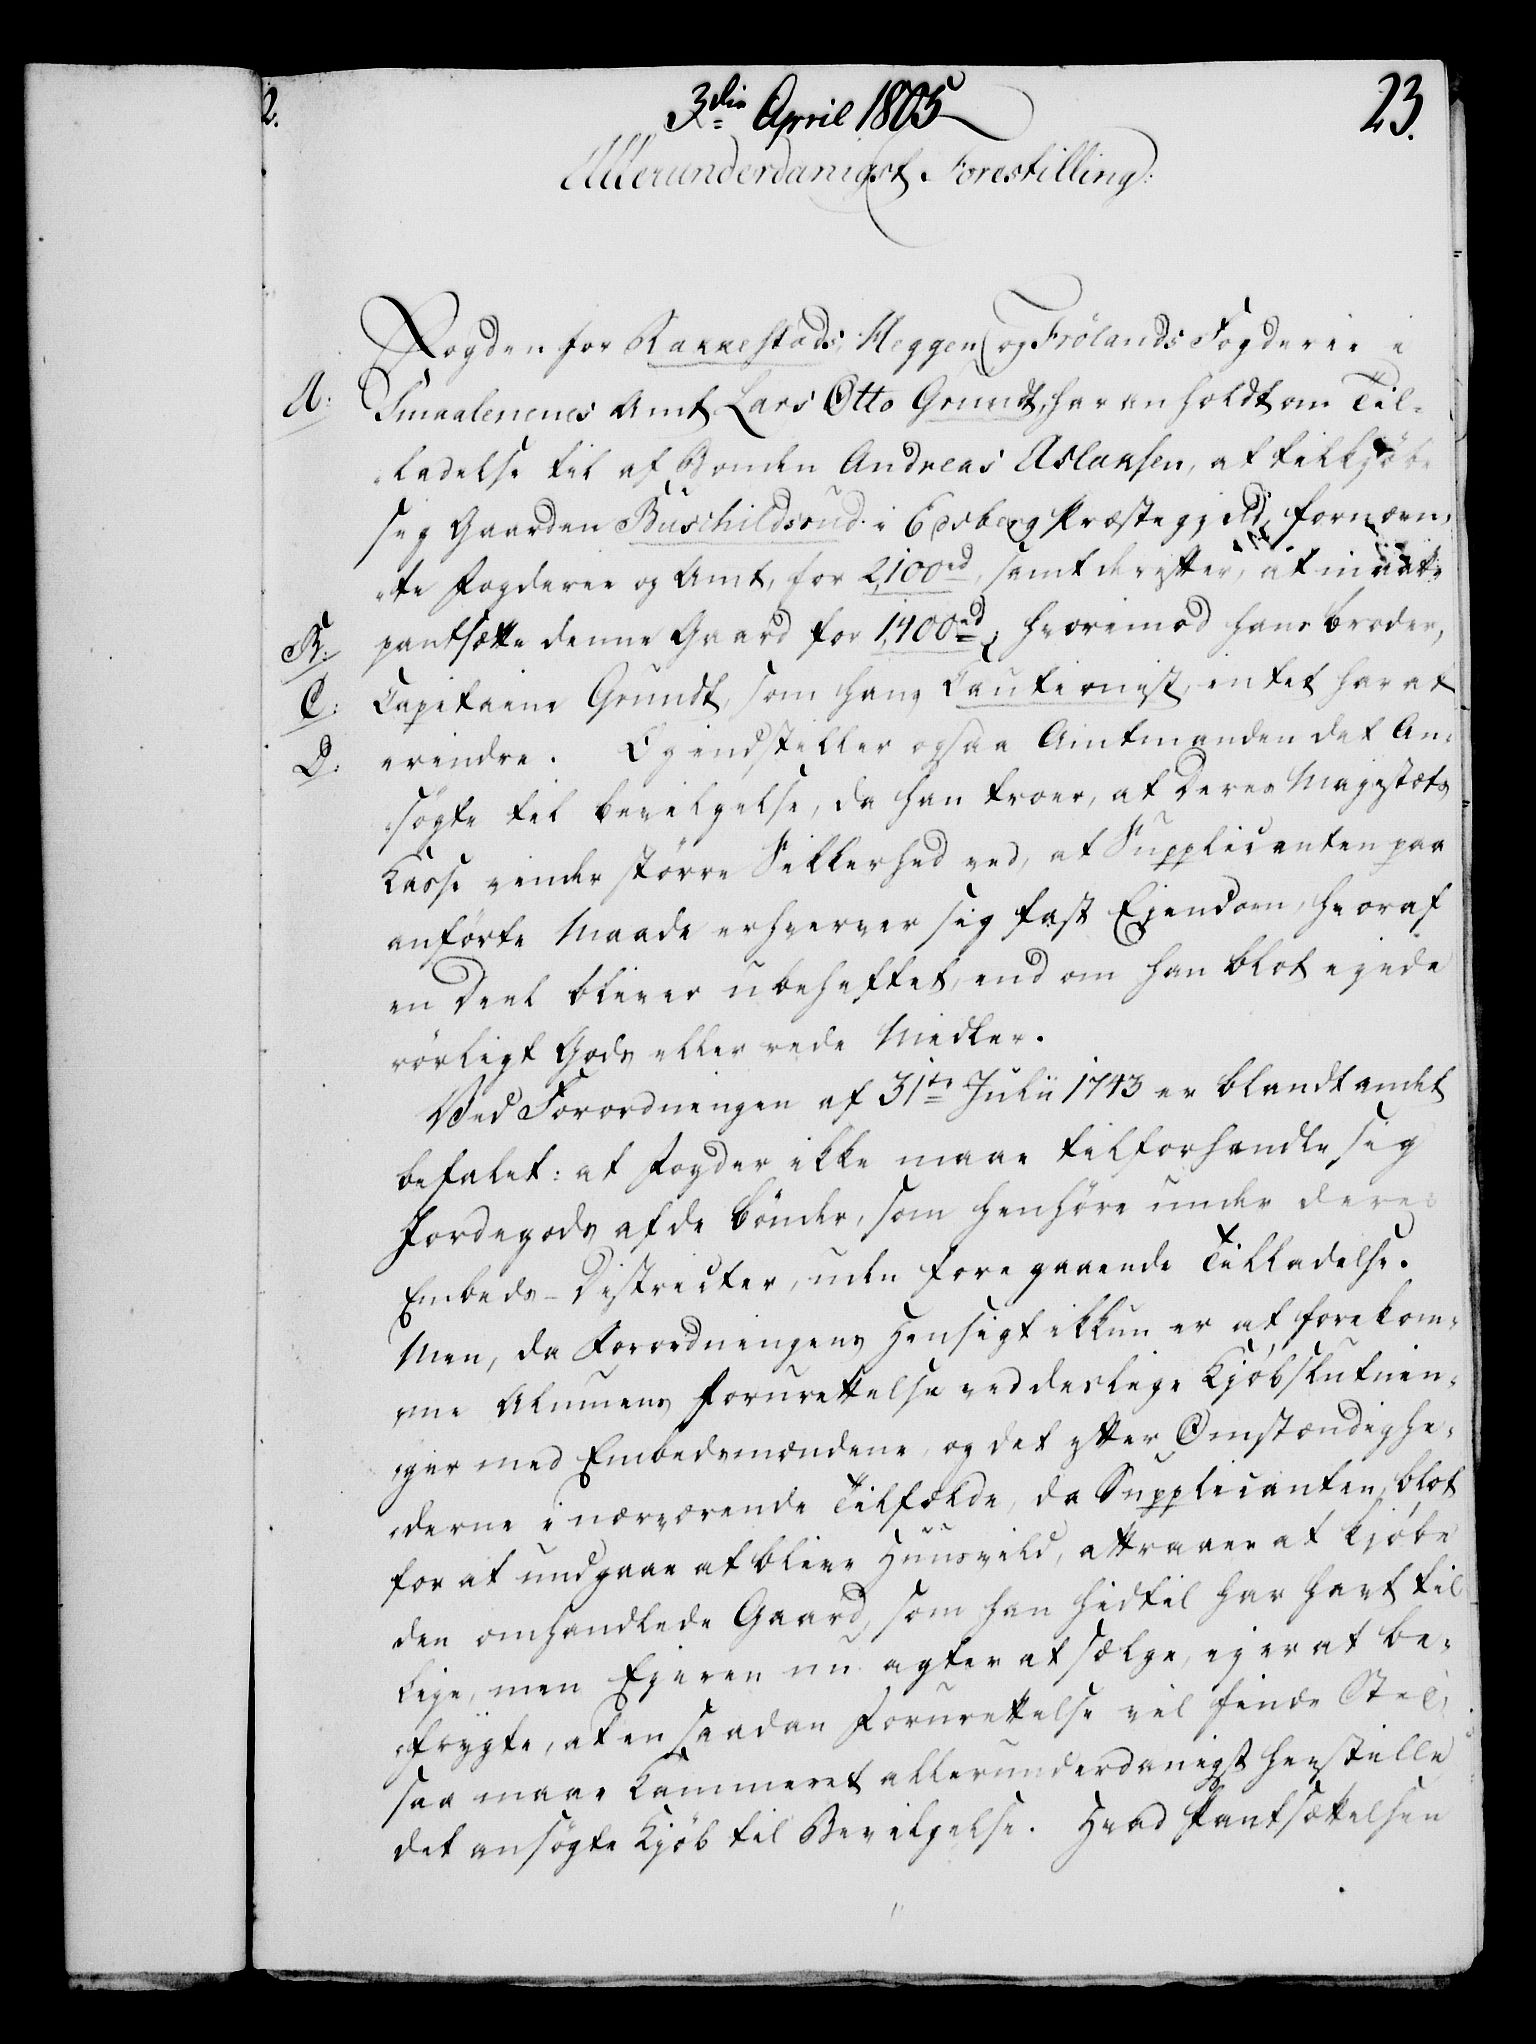 2.
3die April 1805
23.
Allerunderdanigst Forestilling:
Fogden for Rakkestads, Heggen og Frölands Fogderie i
A: Smaalenenes Amt Lars Otto Grundt, har anholdt om Til-
ladelse til af Bonden Andreas Aslaksen, at tilkjöbe
sig Gaarden Buschildsrud i Edsberg Præstegjeld, fornævn-
te Fogderie og Amt, for 2,100 rd, samt derefter, at maatte
B: pantsætte denne Gaard for 1,400 rd, hvorimod hans broder,
C: Capitaine Grundt, som hans Cautionist, intet har at
D: erindre. Og indstiller ogsaa Amtmanden det An-
søgte til bevilgelse, da han troer, at Deres Majestæts
Kasse vinder större Sikkerhed ved, at Supplicanten paa
anförte Maade erhverver sig fast Ejendom, hvoraf
en Deel bliver ubeheftet, end om han blot ejede
rörligt Gods eller rede Midler.
Ved Forordningen af 31te Julii 1743 er blandt andet
befalet: at Fogder ikke maae tilforhandle sig
Jordegods af de bönder, som henhöre under deres
Embeds-Districter, uden foregaaende Tilladelse.
Men, da Forordningens Hensigt ikkun er at forekom-
me Almuens Forurettelse ved deslige Kjöbslutnin-
ger med Embedsmændene, og det efter Omstændighe-
derne i nærværende Tilfælde, da Supplicanten, blot
for at undgaae at blive Huusvild, attraaer at kjöbe
den omhandlede Gaard, som han hidtil har havt til
Leje, men Ejeren nu agter at sælge, ej er at be-
frygte, at en saadan Forurettelse vil finde Sted,
saa maae Kammeret allerunderdanigst henstille
det ansögte Kjöb til Bevilgelse. Hvad Pantsættelsen